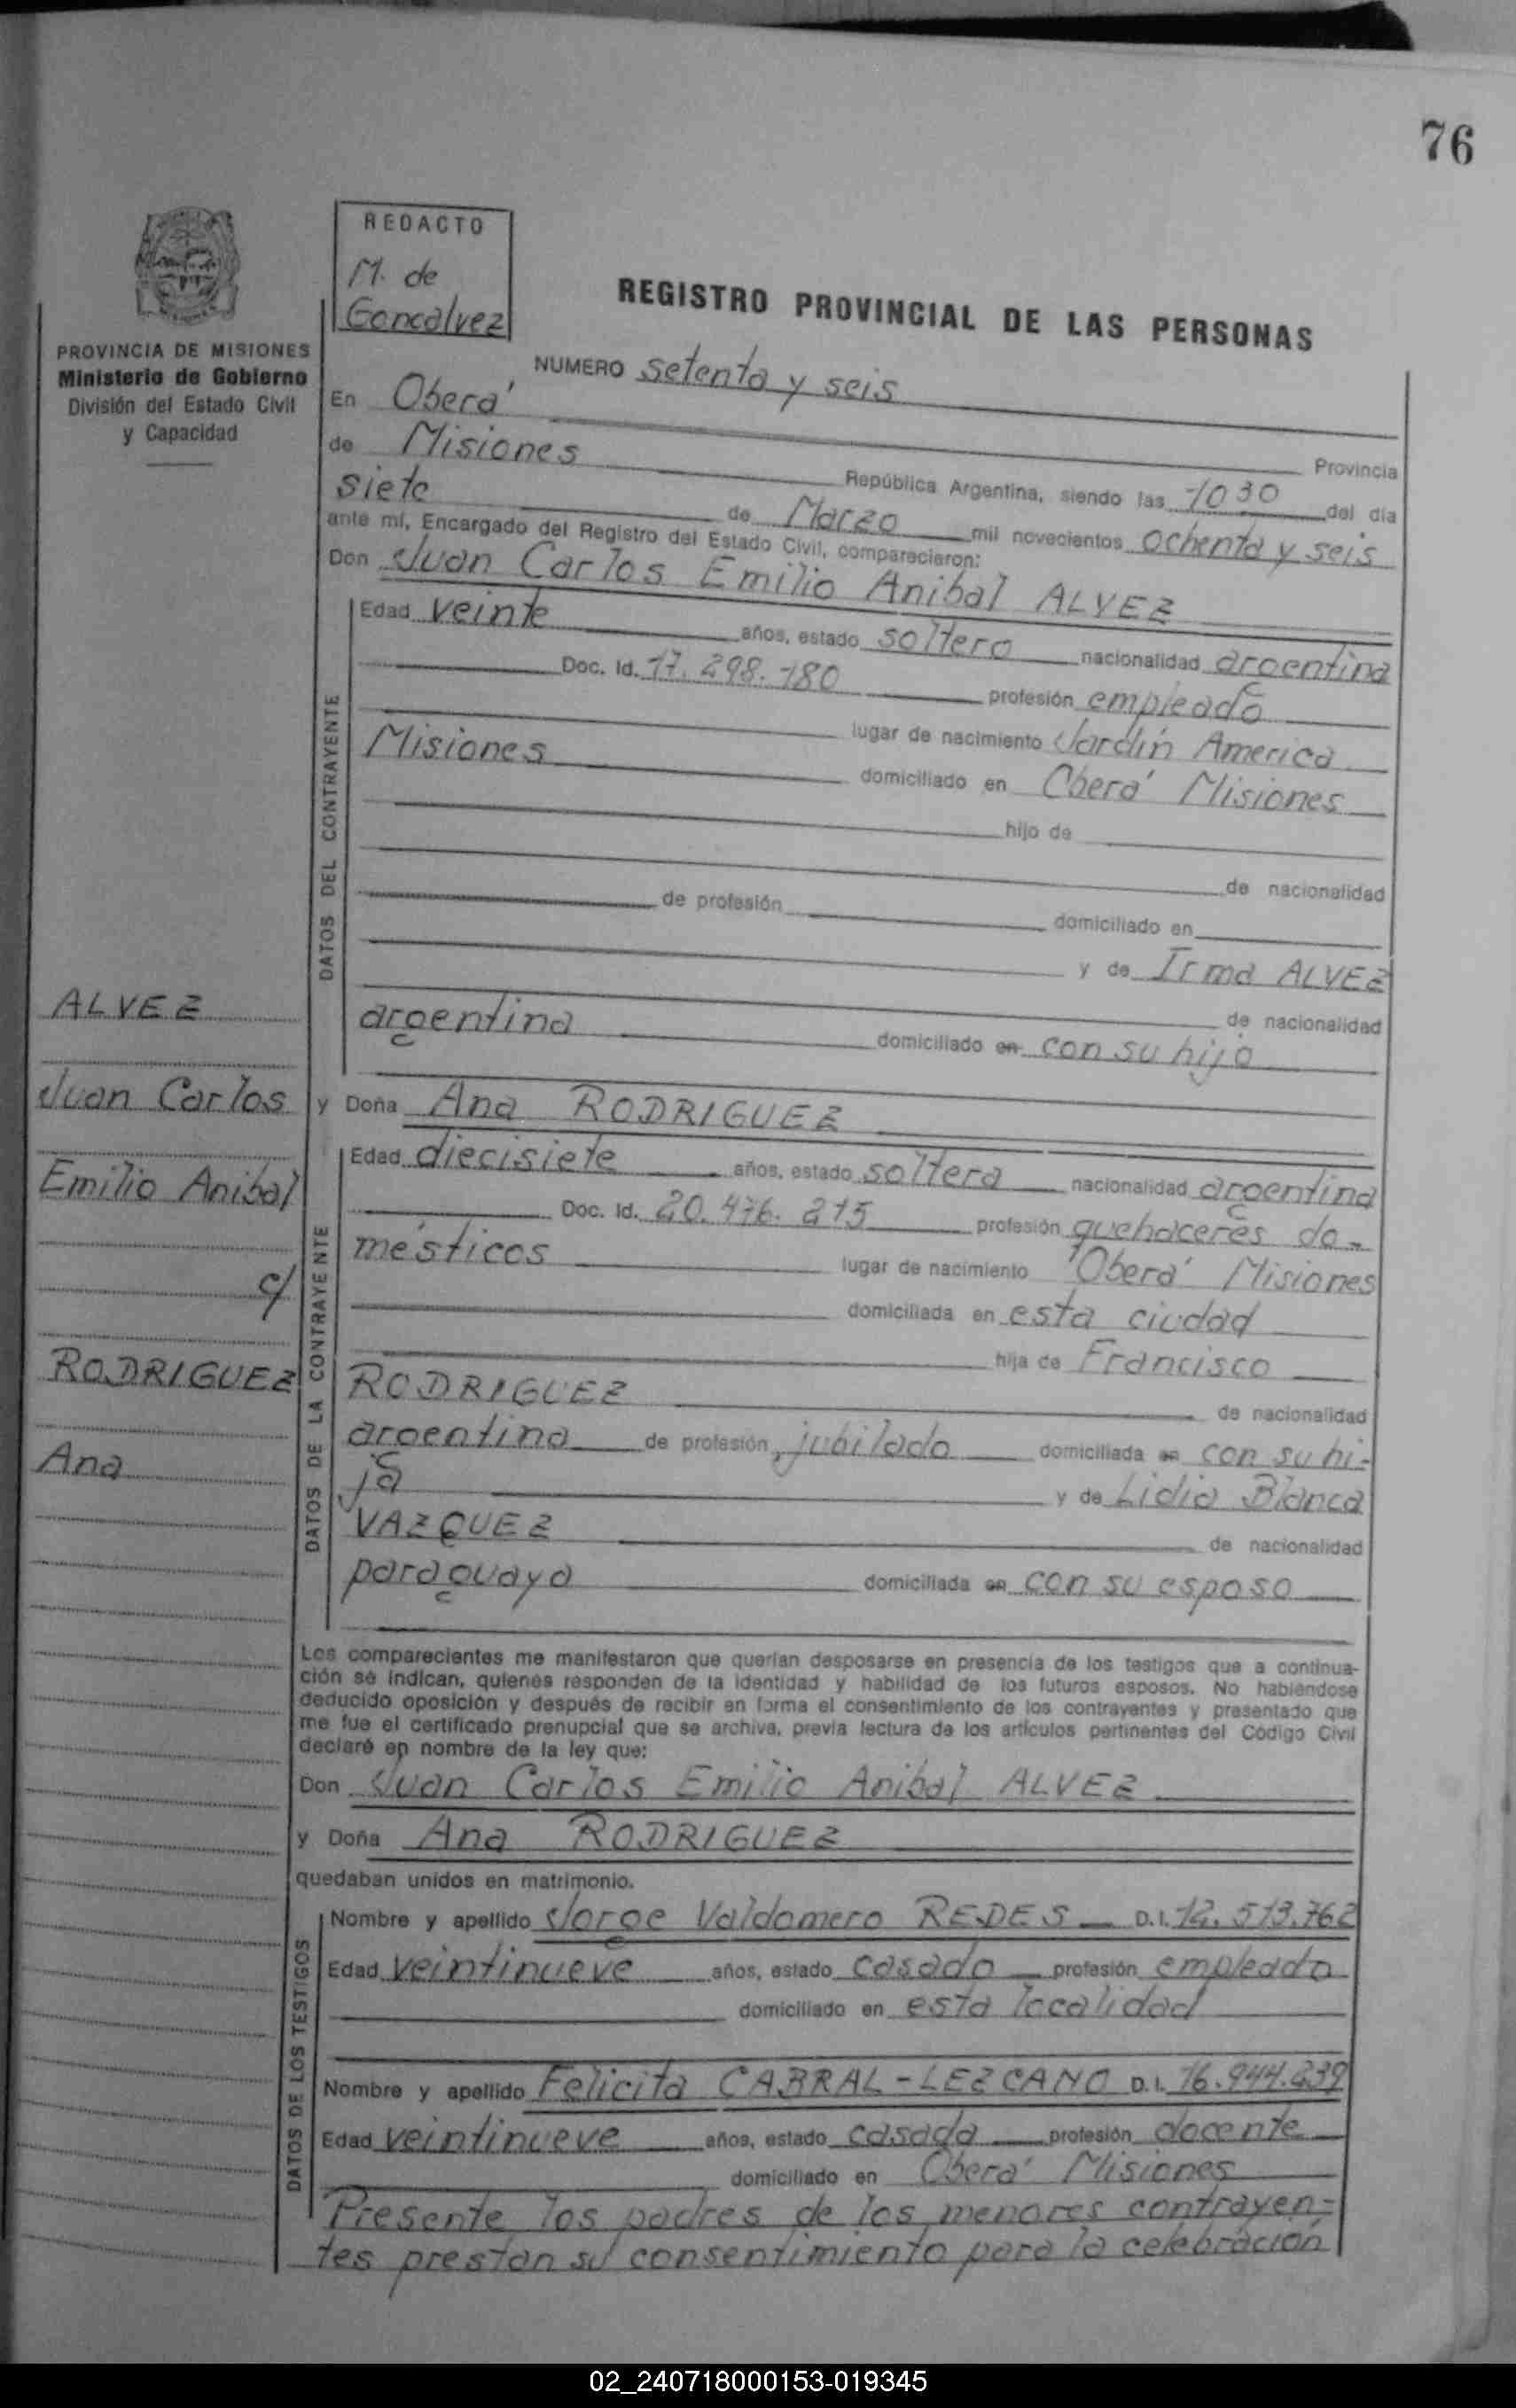 76
REDACTO
M. de
Goncalvez
PROVINCIA DE MISIONES
Ministerio de Gobierno
División del Estado Civil
y Capacidad
REGISTRO PROVINCIAL DE LAS PERSONAS
NUMERO setenta y seis
En Oberá Provincia
de Misiones República Argentina, siendo las 1030 del día
siete de Marzo mil novecientos ochenta y seis
ante mí, Encargado del Registro del Estado Civil, comparecieron:
Don Juan Carlos Emilio Anibal ALVEZ
DATOS DEL CONTRAYENTE
Edad veinte años, estado soltero nacionalidad argentina
Doc. Id. 17.298.180 profesión empleado
lugar de nacimiento Jardín America
Misiones domiciliado en Oberá Misiones
hijo de
de nacionalidad
de profesión domiciliado en
y de Irma ALVEZ
de nacionalidad
argentina domiciliado en con su hijo
y Doña Ana RODRIGUEZ
DATOS DE LA CONTRAYENTE
Edad diecisiete años, estado soltera nacionalidad argentina
Doc. Id. 20.476.215 profesión quehaceres do-
mésticos lugar de nacimiento Oberá Misiones
domiciliada en esta ciudad
hija de Francisco
RODRIGUEZ de nacionalidad
argentino de profesión jubilado domiciliada en con su hi-
ja y de Lidia Blanca
VAZQUEZ de nacionalidad
paraguaya domiciliada en con su esposo
ALVEZ
Juan Carlos
Emilio Anibal
c/
RODRIGUEZ
Ana
Los comparecientes me manifestaron que querían desposarse en presencia de los testigos que a continua-
ción se indican, quienes responden de la identidad y habilidad de los futuros esposos. No habiéndose
deducido oposición y después de recibir en forma el consentimiento de los contrayentes y presentado que
me fue el certificado prenupcial que se archiva, previa lectura de los artículos pertinentes del Código Civil
declaré en nombre de la ley que:
Don Juan Carlos Emilio Anibal ALVEZ
y Doña Ana RODRIGUEZ
quedaban unidos en matrimonio.
DATOS DE LOS TESTIGOS
Nombre y apellido Jorge Valdomero REDES D.I. 12.513.762
Edad veintinueve años, estado casado profesión empleado
domiciliado en esta localidad
Nombre y apellido Felicita CABRAL-LEZCANO D.I. 16.944.239
Edad veintinueve años, estado casada profesión docente
domiciliado en Oberá Misiones
Presente los padres de los menores contrayen=
tes prestan su consentimiento para la celebración
02_240718000153-019345